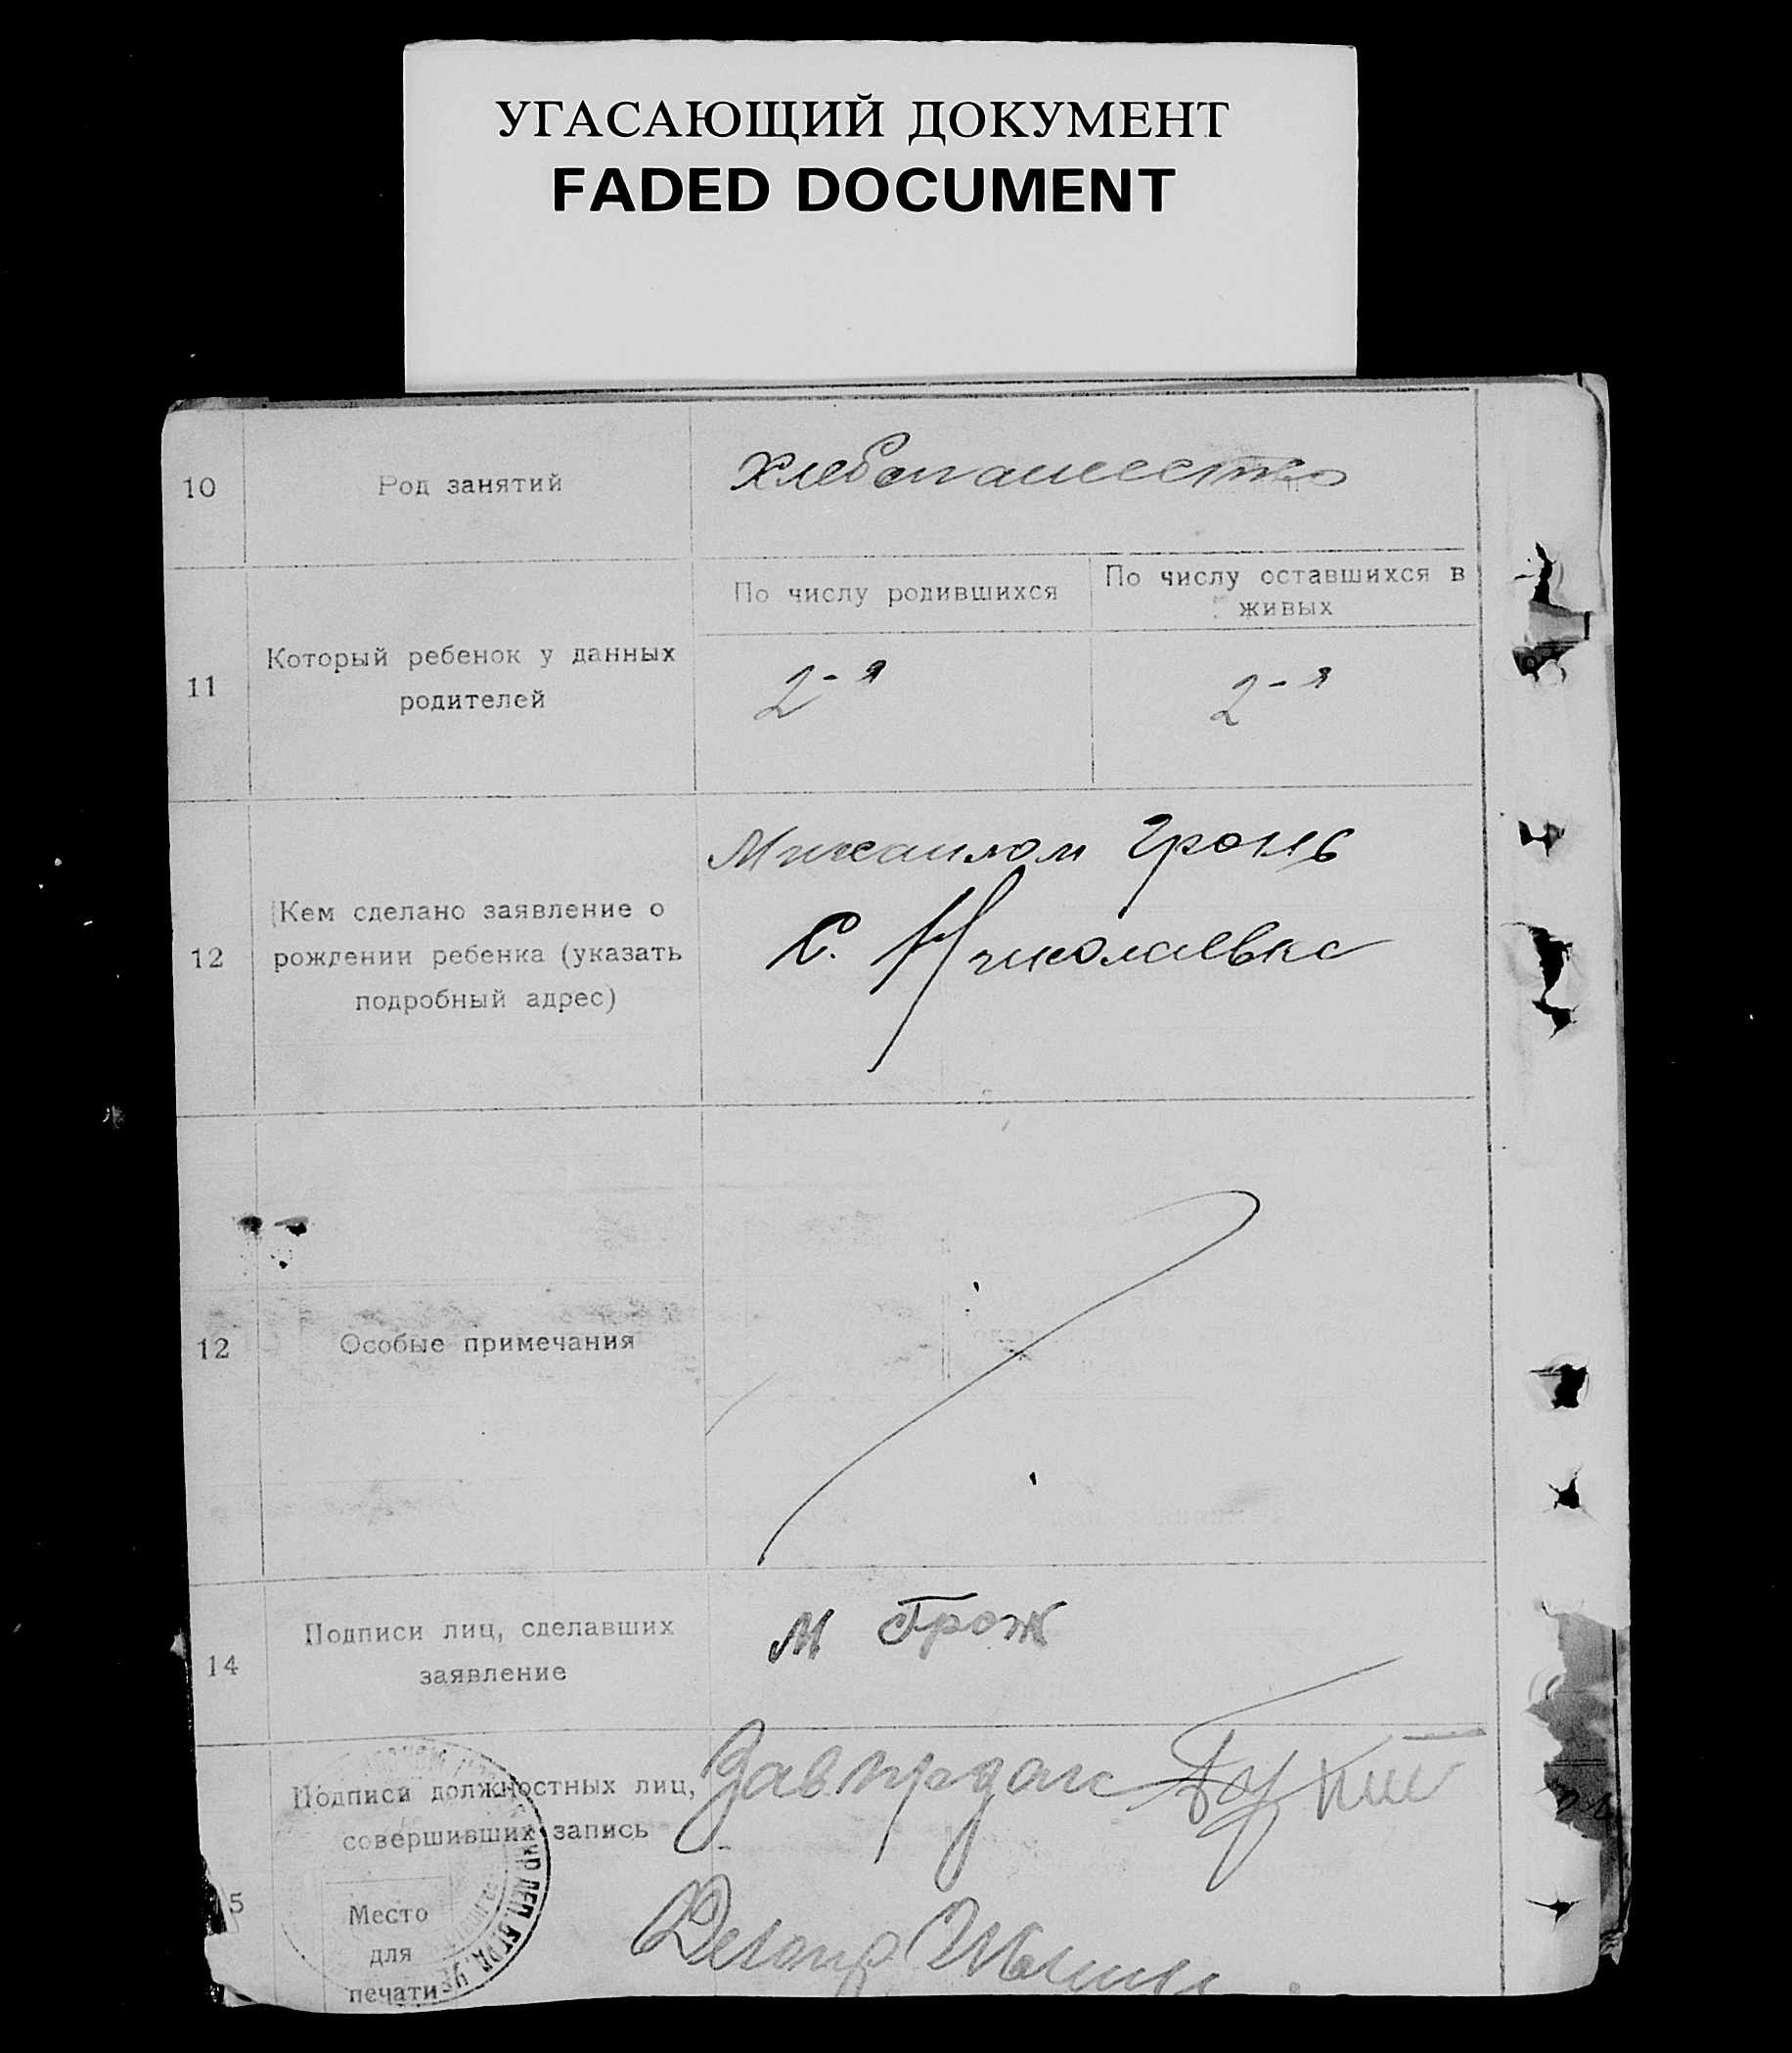 УГАСАЮЩИЙ ДОКУМЕНТ
FADED DOCUMENT
10
Род занятий
Хлебопашество
11
Который ребенок у данных
родителей
По числу родившихся
По числу оставшихся в
живых
2-я
2-я
12
(Кем сделано заявление о
рождении ребенка (указать
подробный адрес)
Михаилом
С. Николаевка
12
Особые примечания
14
Подписи лиц, сделавших
заявление
М
5
Подписи должностных лиц,
совершивших запись
Место
для
печати